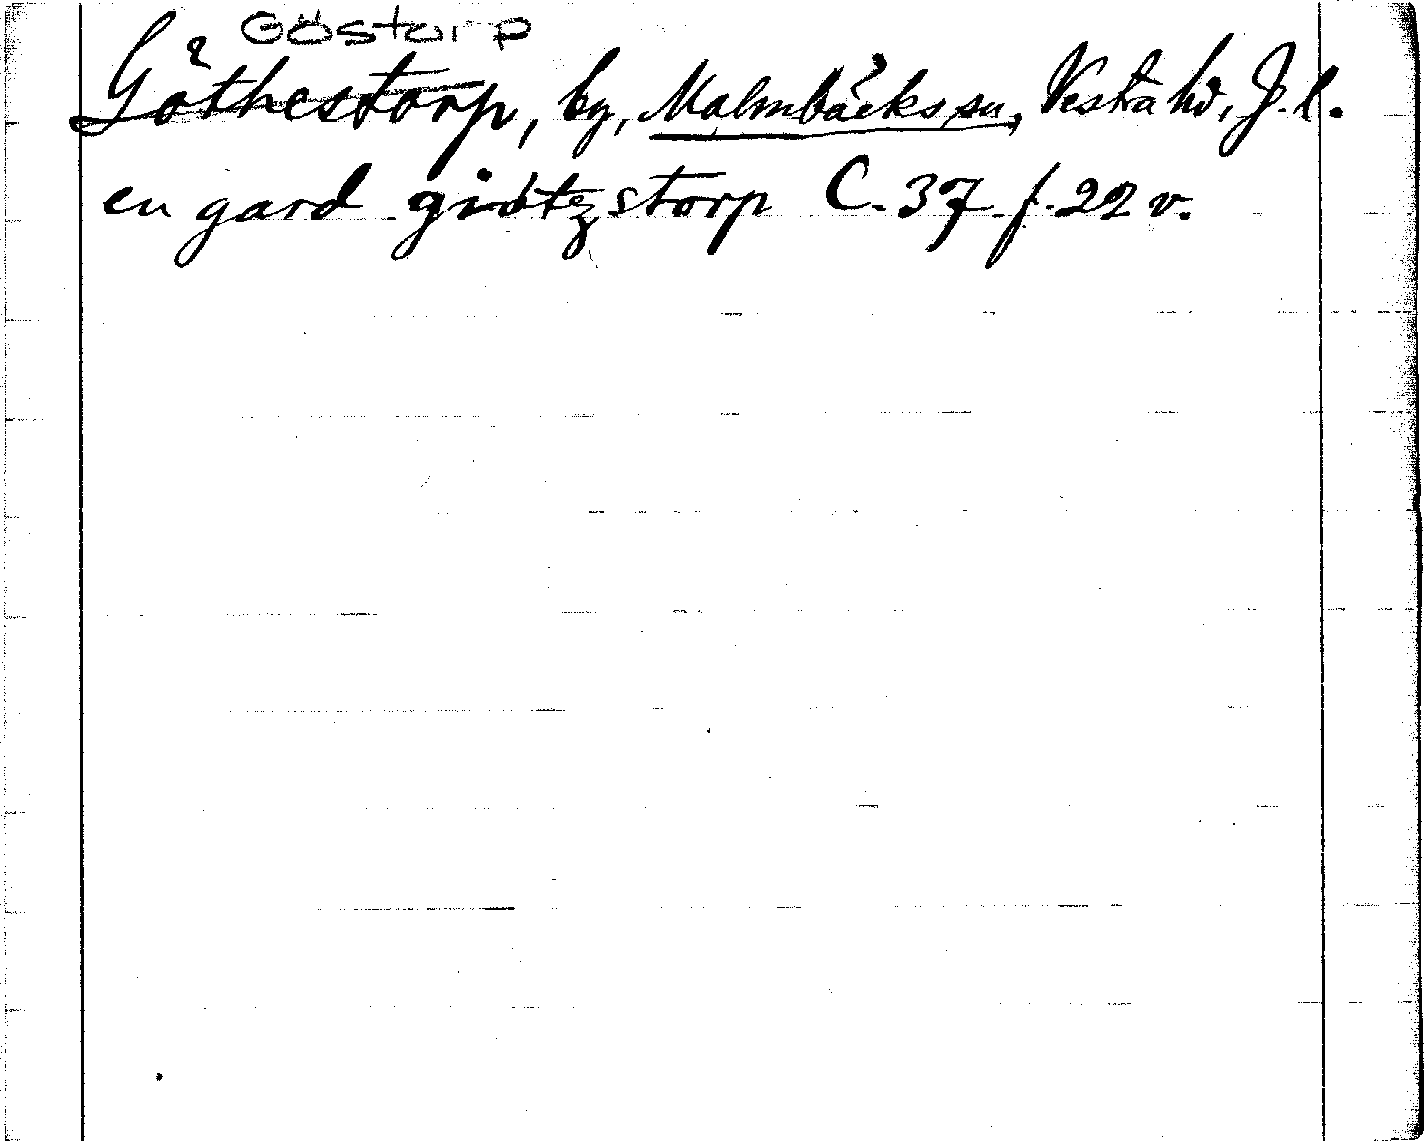 Göstorp
Göthestorp, by, Malmbäcks sn, Vestra hd, J. l.
en gard giötzstorp C. 37 f. 22 v.